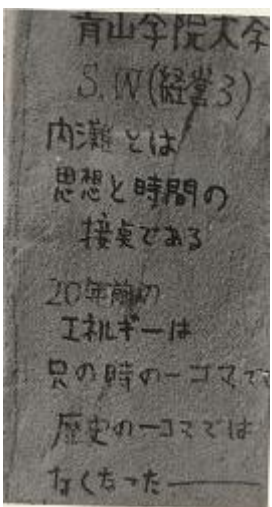 青山学院大学
S.W(経営3)
内灘とは
思想と時間の
接点である
20年前の
エネルギーは
只の時の一コマで
歴史の一コマでは
なくなった——